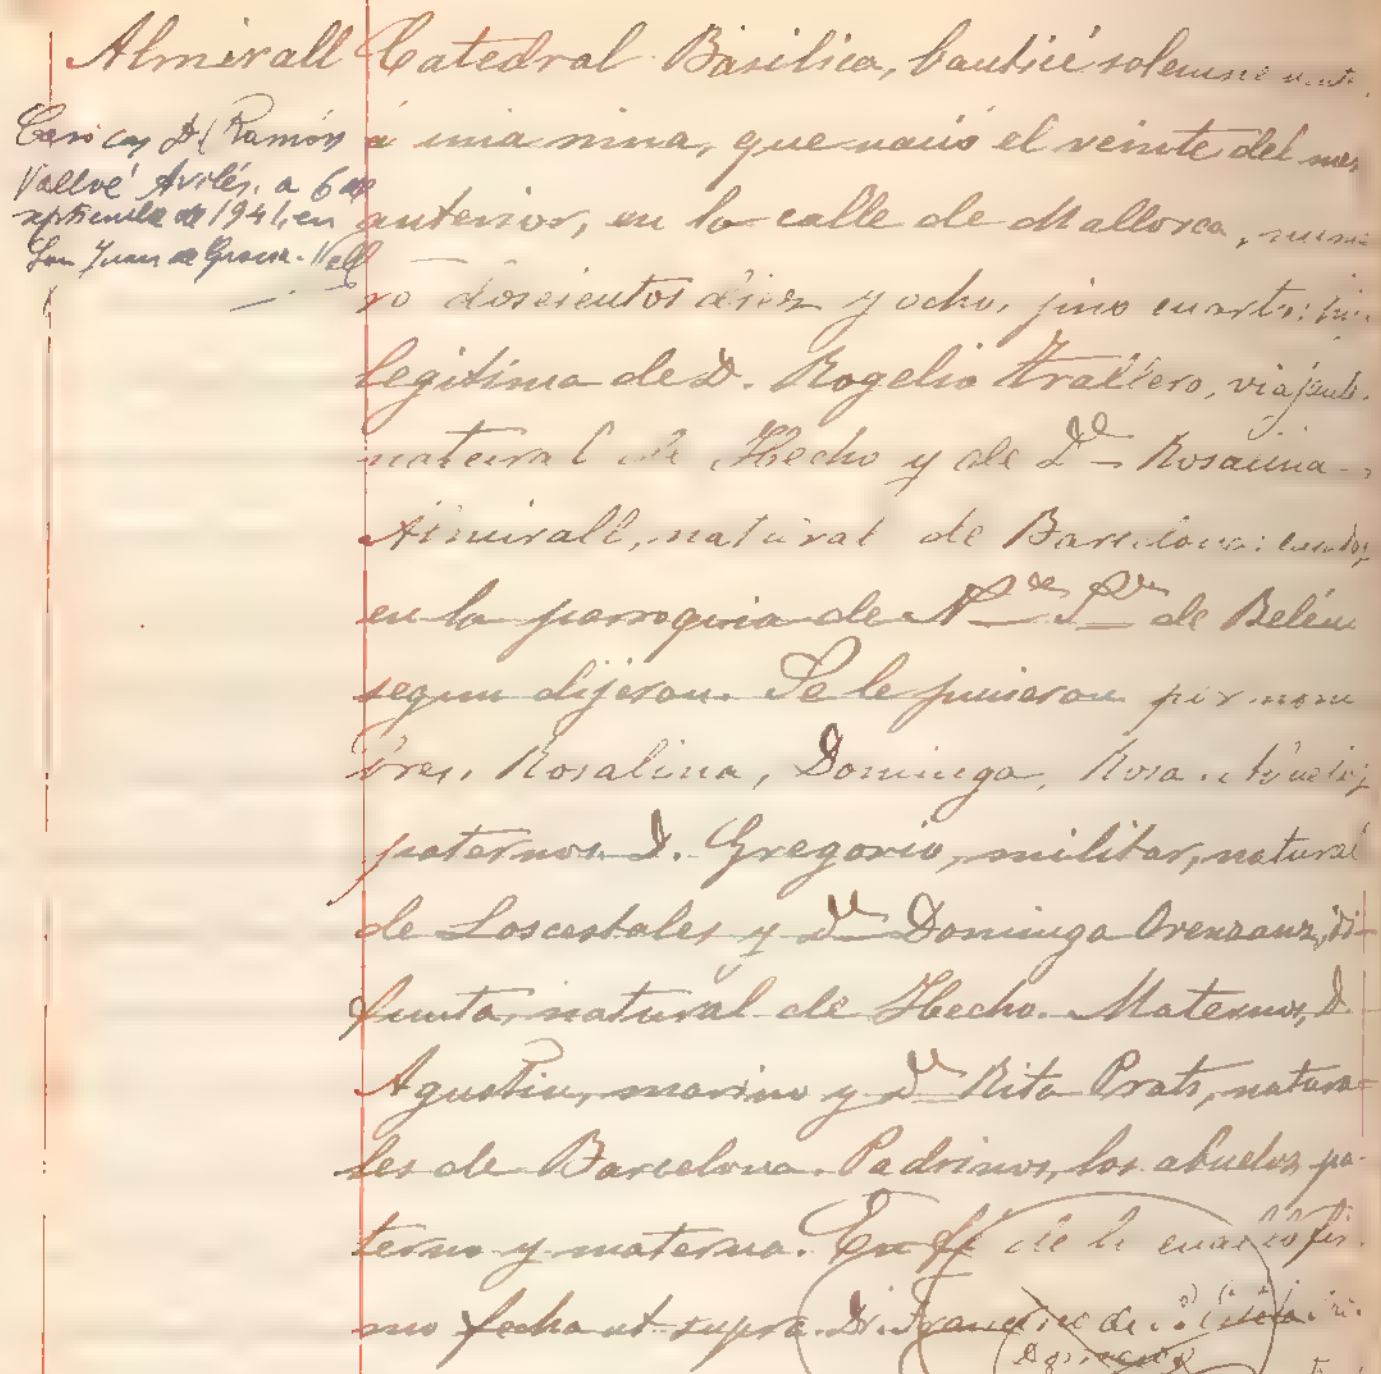 Almirall
Casó con D. Ramón
Vallvé Avilés, a 6 de
septiembre de 1941, en
San Juan de Gracia.
Catedral Basilica, bauticé solemnemente
á una nina, que nació el veinte del mes
anterior, en la calle de Mallorca, núme
ro doscientos diez y ocho, piso cuarto: hija
legitima de D. Rogelio Trallero, viajante
natural de Hecho y de Dª Rosalina
Almirall, natural de Barcelona: casados
en la parroquia de Nª Sª de Belén
segun dijeron. Se le pusieron por nom
bres, Rosalina, Dominga, Rosa. Abuelos
paternos D. Gregorio, militar, natural
de Loscertales y Dª Dominga Orensanz, di-
funta, natural de Hecho. Maternos, D.
Agustin, marino y Dª Rita Prats, natura-
les de Barcelona. Padrinos, los abuelos pa-
terno y materna. En fé de lo cual lo fir
mo fecha ut supra. Dr. Francisco de